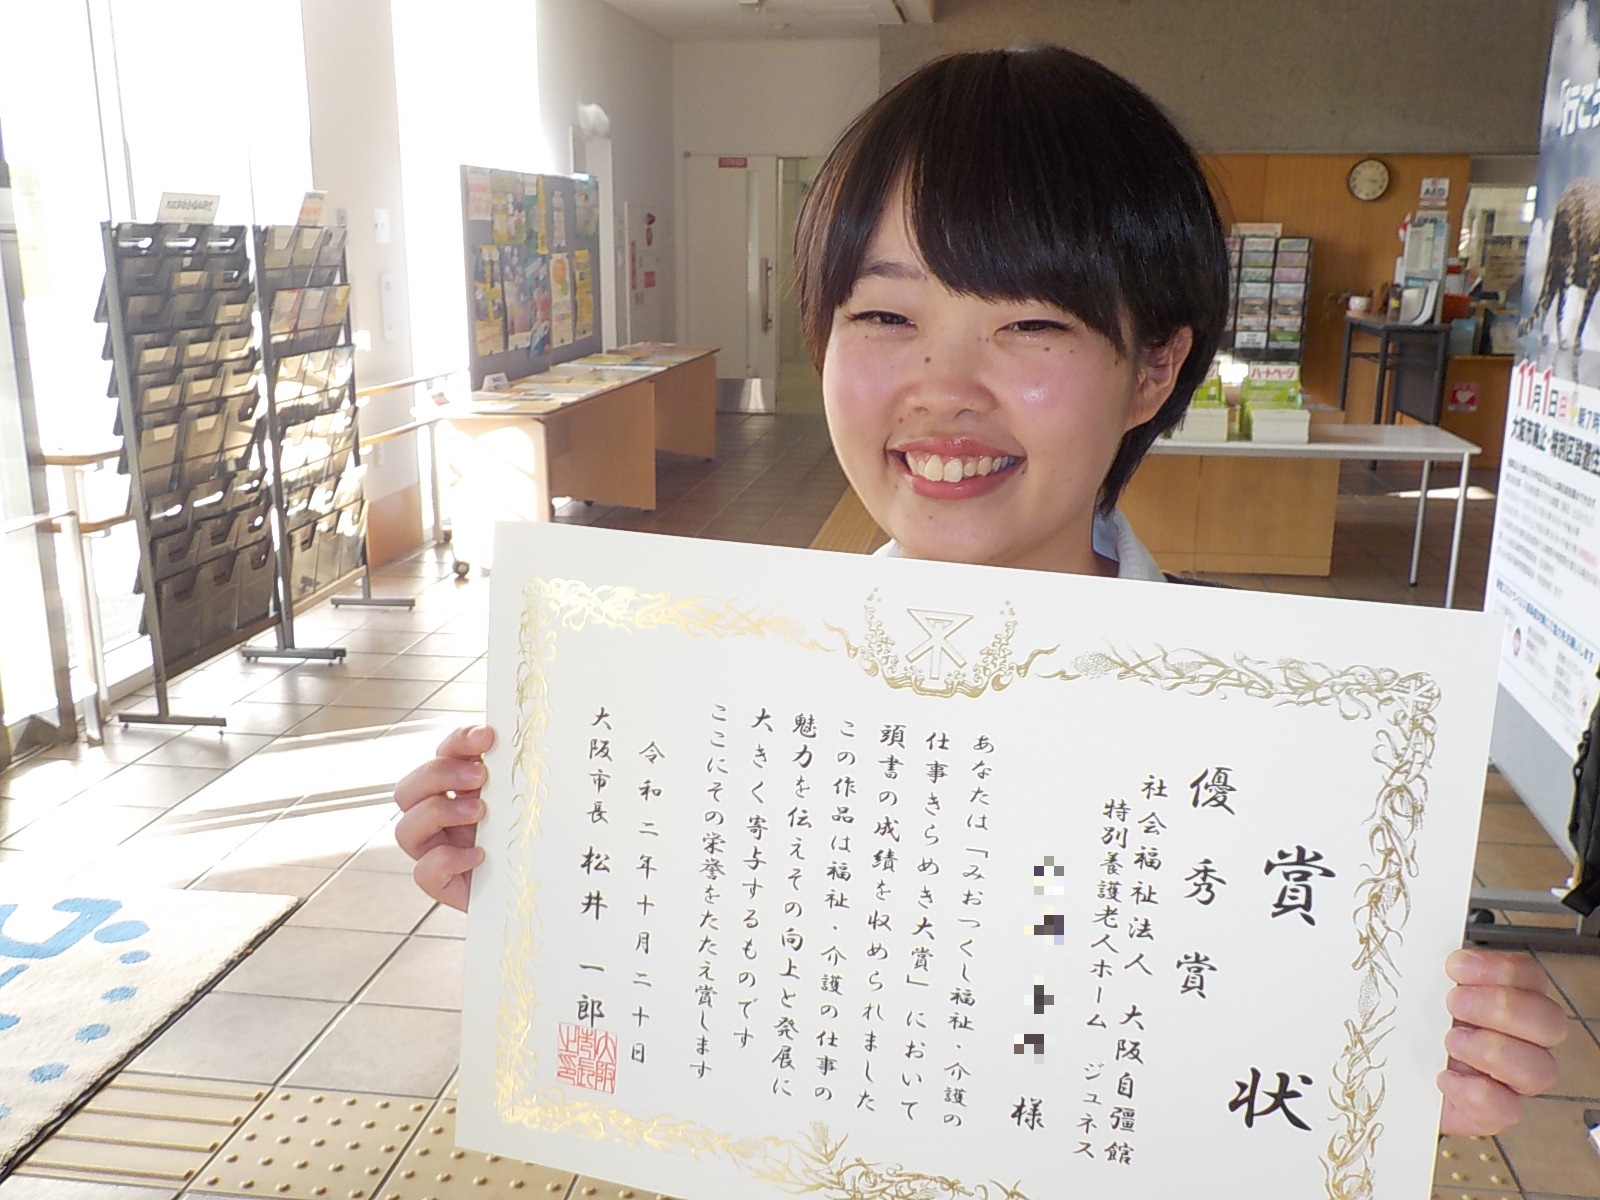 賞状
優秀賞
社会福祉法人 大阪自彊館
特別養護老人ホーム ジュネス
様
あなたは「みおつくし福祉・介護の
仕事きらめき大賞」において
頭書の成績を収められました
この作品は福祉・介護の仕事の
魅力を伝えその向上と発展に
大きく寄与するものです
ここにその栄誉をたたえ賞します
令和二年十月二十日
大阪市長 松井 一郎
大阪市長之印
AED
ハートページ
「行こう
11月1日
朝7時
大阪市廃止・特別区設置住